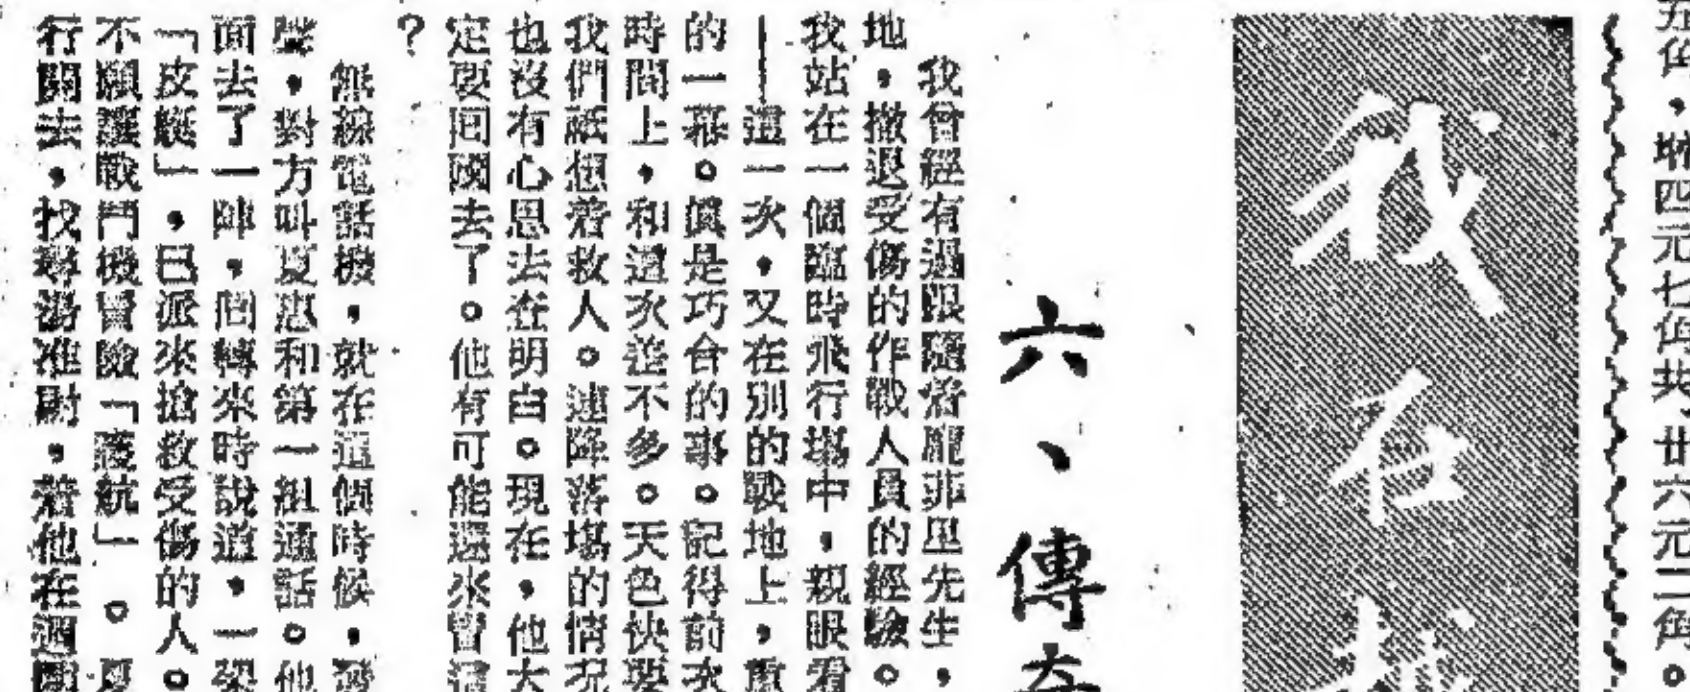 五角,　四元七角共廿六元二角。
我在
六、傳奇
我曾經有過跟隨着龐菲里先生,
地,撤退受傷的作戰人員的經驗。
我站在一個臨時飛行場中,親眼看
——這一次,又在別的戰地上,重
的一幕。眞是巧合的事。記得前次
時間上,和這次差不多。天色快要
我們祇想着救人。連降落場的情况
也沒有心思去查明白。現在,他大
定要囘國去了。他有可能還來嘗這
?
無線電話機,就在這個時候,發
聲,對方叫夏惠和第一組通話。他
面去了一陣,囘轉來時說道,一架
「皮艇」,已派來搶救受傷的人。
不願讓戰鬥機冒險「護航」。夏
行開去,找尋湯准尉,着他在週圍